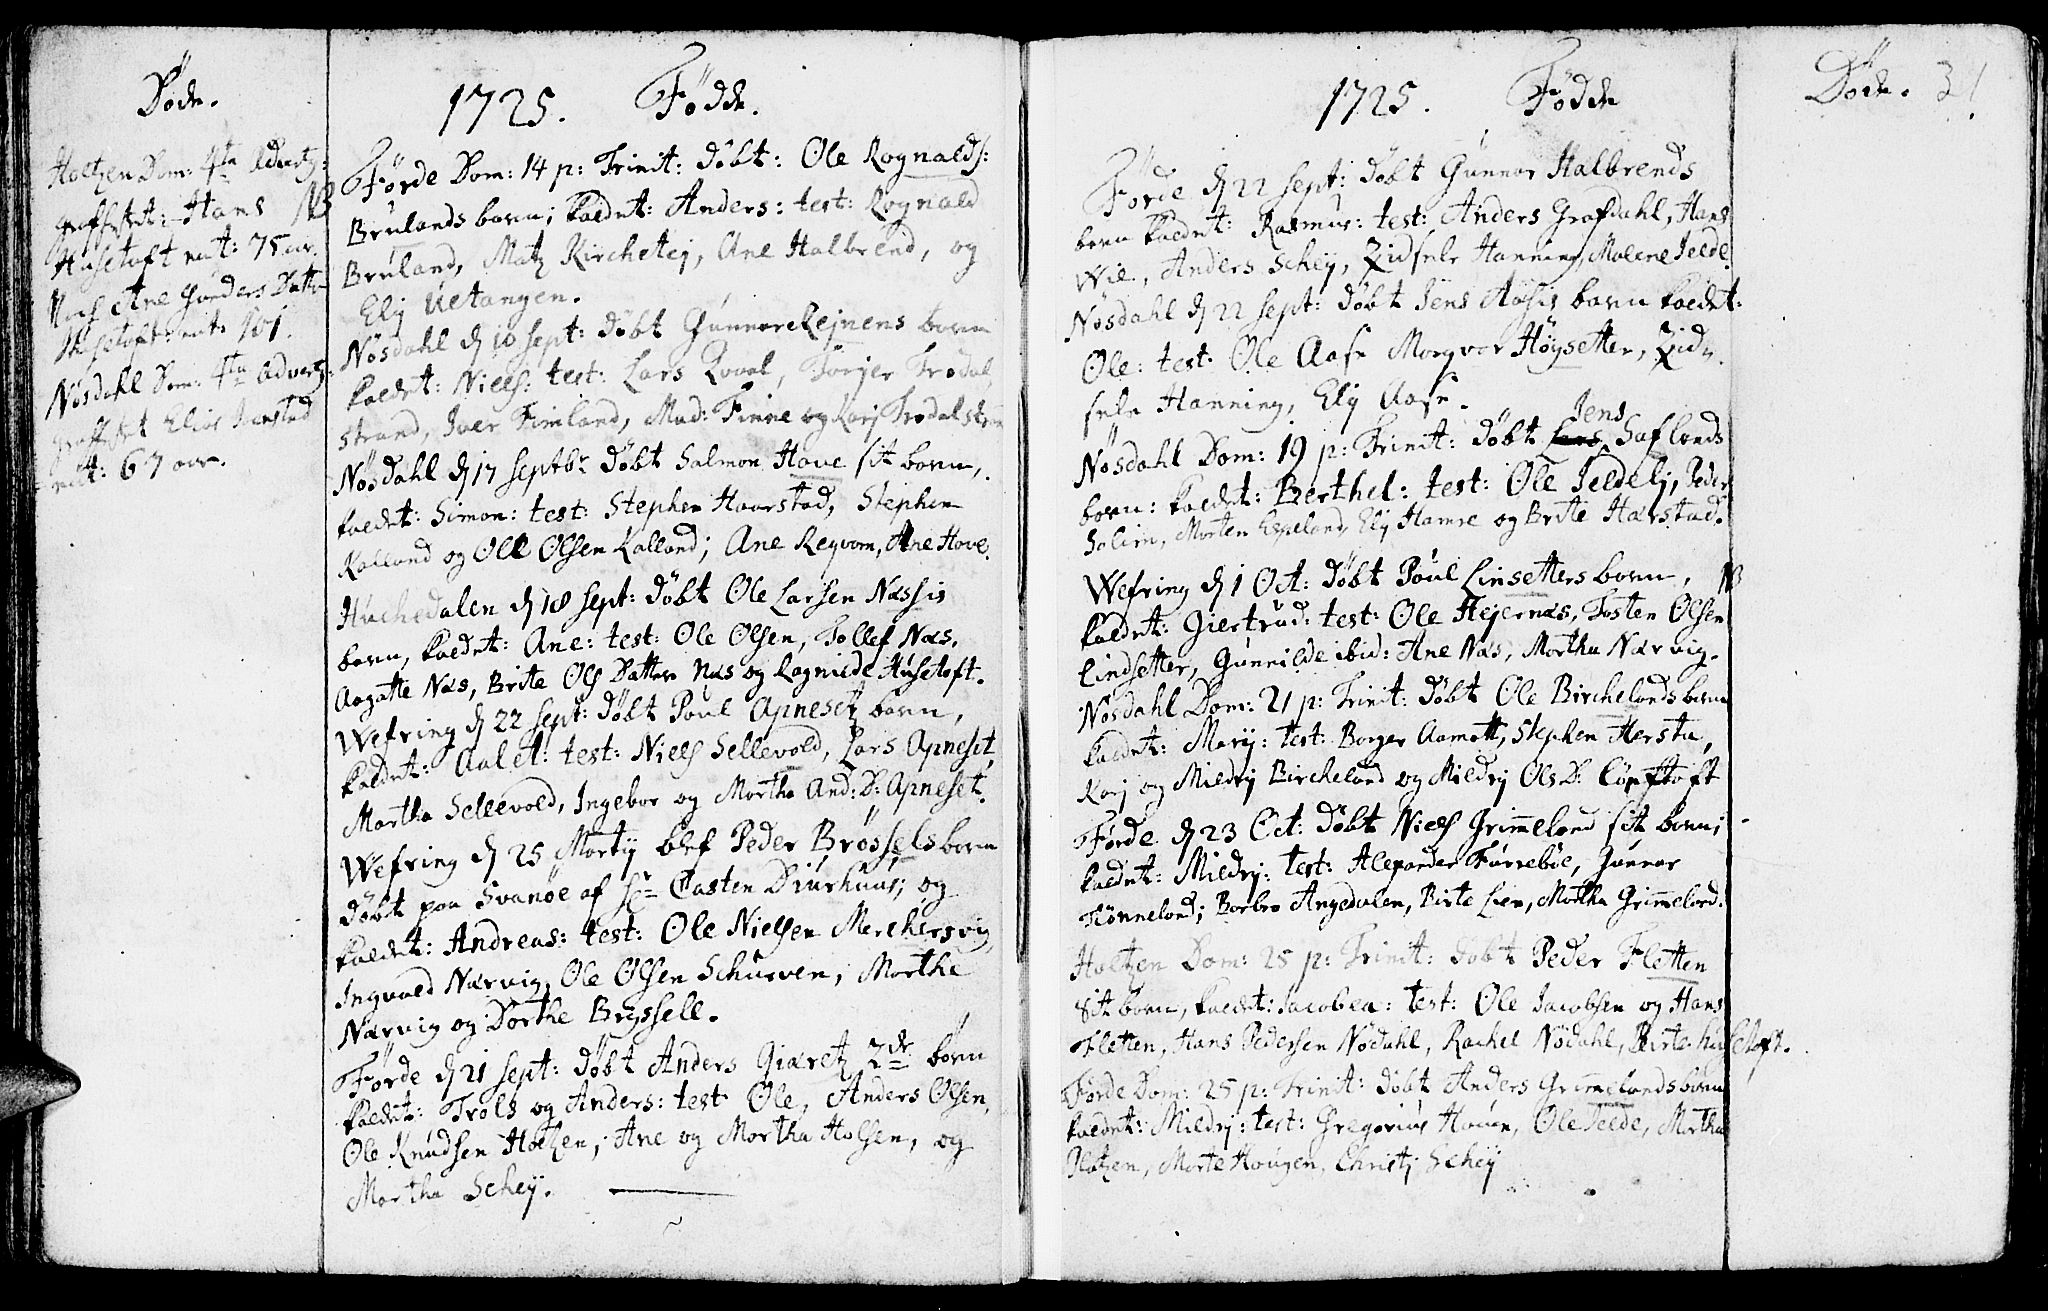 Döde.
Holtzen Dom: 4ta Advent:
graffestet: Hans NB
Husetoft æat: 75 aar.
Ane Gunders Datter
Husetoft: æat: 101.
Nösdahl Dom: 4ta Advent:
graffestet Elias
æat: 67 aar.
1725. Födde.
Förde Dom: 14 p: Trinit: döbt: Ole Rognalds:
Brulands barn; kaldet: Anders: test: Rognald
Bruland, Matz Kirchetej, Ane Halbrend, og
Elj Uetangen.
Nösdahl d 10 Sept: döbt Gunnar Rejnens barn
kaldet: Niels: test: Lars Qvaal, Torger Trodal
strand, Iver Fimland, Mad: Finne og Karj Trodalstran
Nösdahl d 17 Septbr döbt Salmon Hove sit barn,
kaldet: Simon: test: Stephen Haarstad, Stephen
Kalland og Ole Olsen Kalland; Ane Reqvam, Ane Hove.
Huchedalen d 18 Sept: döbt Ole Larsen Næssis
barn, kaldet: Ane: test: Ole Olsen, Tollef Næs,
Aagatte Næs, Brite Ols Datter Næs og Ragnilde Husetoft.
Wefring d 22 Sept: döbt Poul Apnesetz barn,
kaldet: Aalet: test: Niels Sellevold, Lars Apneset,
Martha Sellevold, Ingebor og Martha And: D: Apneset.
Wefring d 25 Martij blef Peder Brössels barn
döbt paa Svanöe af Hr Casten Diurhuus; og
kaldet: Andreas: test: Ole Nielsen Merchersvig,
Ingvald Nærvig, Ole Olsen Schurven, Marthe
Nærvig og Dorthe Bryssell.
Förde d 21 Sept: döbt Anders Qiæretz 2de börn
kaldet: Trols og Anders: test: Ole, Anders Olsen,
Ole Knudsen Holtzen, Ane og Martha Holsen, og
Martha Schej.
1725. Födde
Förde d 22 Sept: döbt Gunnar Halbrends
barn kaldet: Rasmus: test: Anders Grafdahl, Hans
Wie, Anders Schej, Zidsele Hanning, Malene Jelde.
Nösdahl d 22 Sept: döbt Jens Aasis barn kaldet:
Ole: test: Ole Aase Margvar Höysetter, Zid-
sele Hanning, Elj Aase.
Jens
Nösdahl Dom: 19 p: Trinit: döbt Lars Saflands
barn: kaldet: Berthel: test: Ole Jeldelj, Peder
Solim, Morten Espeland, Elj Hamre og Brite Harstad.
Wefring d 1 Oct: döbt Poul Linsetters barn, NB
kaldet: Giertrud: test: Ole Hejernæs, Tosten Olsen
Lindsetter, Gunnilde ibid: Ane Næs, Martha Nærvig.
Nösdahl Dom: 21 p: Trinit: döbt Ole Birchelands barn
kaldet: Marij: test: Borger Aamott, Stephen Hersta,
Karj og Mildrij Bircheland og Mildrij Ols D:
Förde d 23 Oct: döbt Niels Grimeland sit barn;
kaldet: Mildrj: test: Alexander Furreböe, Gunnar
Tiönneland; Barbro Angedalen, Birte Lien, Martha Grimeland.
Holtzen Dom: 25 p: Trinit: döbt Peder Fletten
sit barn, kaldet: Jacobea: test: Ole Jacobsen og Hans
Fletten, Hans Pedersen Nödahl, Rachel Nödahl, Birte Husetoft.
Förde Dom: 25 p: Trinit: döbt Anders Grimelands barn
kaldet: Mildrj: test: Gregorius Houen, Ole Jelde, Martha
Holtzen, Marte Hougen, Christj Schej
Döde. 31